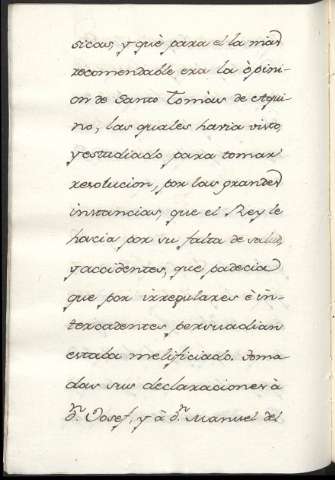 sicas, y què para el la mas
recomendable era la òpini-
on de Santo Tomàs de Aqui
no, las quales havia visto,
y estudiado para tomar
resolucion, por las grandes
instancias, que el Rey le
hacia por su falta de salud,
y accidentes, que padecia
que por irregulares è in-
tercadentes persuadian
estaba meleficiado. Toma-
das sus declaraciones à
Dn. Josef, y à Dn. Manuel del